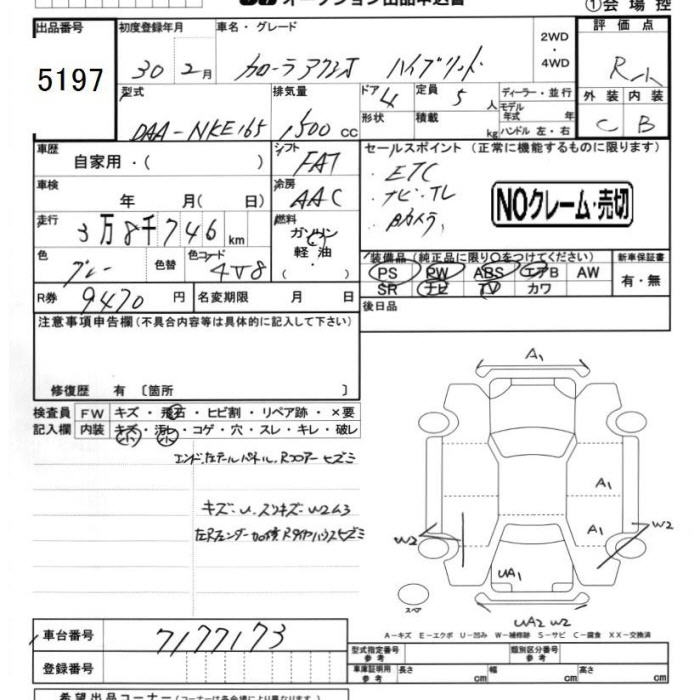 オークション出品申込書
①会場控
出品番号 5197
初度登録年月 30 2月
車名・グレード カローラアクシオ ハイブリッド
2WD・4WD
評価点
外装 C 内装 B
型式 DAA-NKE165
排気量 1500 cc
ドア 4
形状
定員 5 人
積載 kg
ディーラー・並行
モデル年式 年式
ハンドル 左・右
車歴 自家用・( )
シフト FAT
車検 年 月( 日)
冷房 AAC
走行 3万8千746 km
燃料 ガソリン 軽油・( ・ )
色 グレー 色替 色コード 4V8
R券 9470 円 名変期限 月 日
セールスポイント (正常に機能するものに限ります)
・ETC
・ナビ・TV
・Bカメラ
NOクレーム・売切
装備品 (純正品に限り○をつけてください)
PS PW ABS エアB AW
SR ナビ TV カワ
新車保証書
有・無
後日品
注意事項申告欄 (不具合内容等は具体的に記入して下さい)
修復歴 有 〔箇所 〕
検査員記入欄
FW キズ・飛石・ヒビ割・リペア跡・×要
内装 キズ・汚レ・コゲ・穴・スレ・キレ・破レ
エンド、左テールパネル、Rフロアーヒズミ
キズ・U スリキズ・W2ムラ
A1
A1
A1
W2
W2
UA1
UA2 W2
スペア
A－キズ E－エクボ U－凹み W－補修跡 S－サビ C－腐食 XX－交換済
車台番号 7177173
登録番号
型式指定番号 参考
類別区分番号 参考
車庫証明用 参考 長さ cm 幅 cm 高さ cm
希望出品コーナー